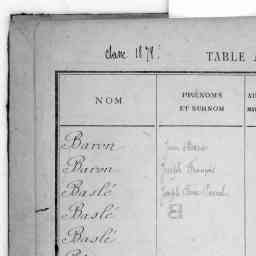 classe 1878.
TABLE
NOM
PRÉNOMS
ET SURNOM
Baron
Baron Joseph François
Baslé Joseph Pierre
Baslé
Baslé